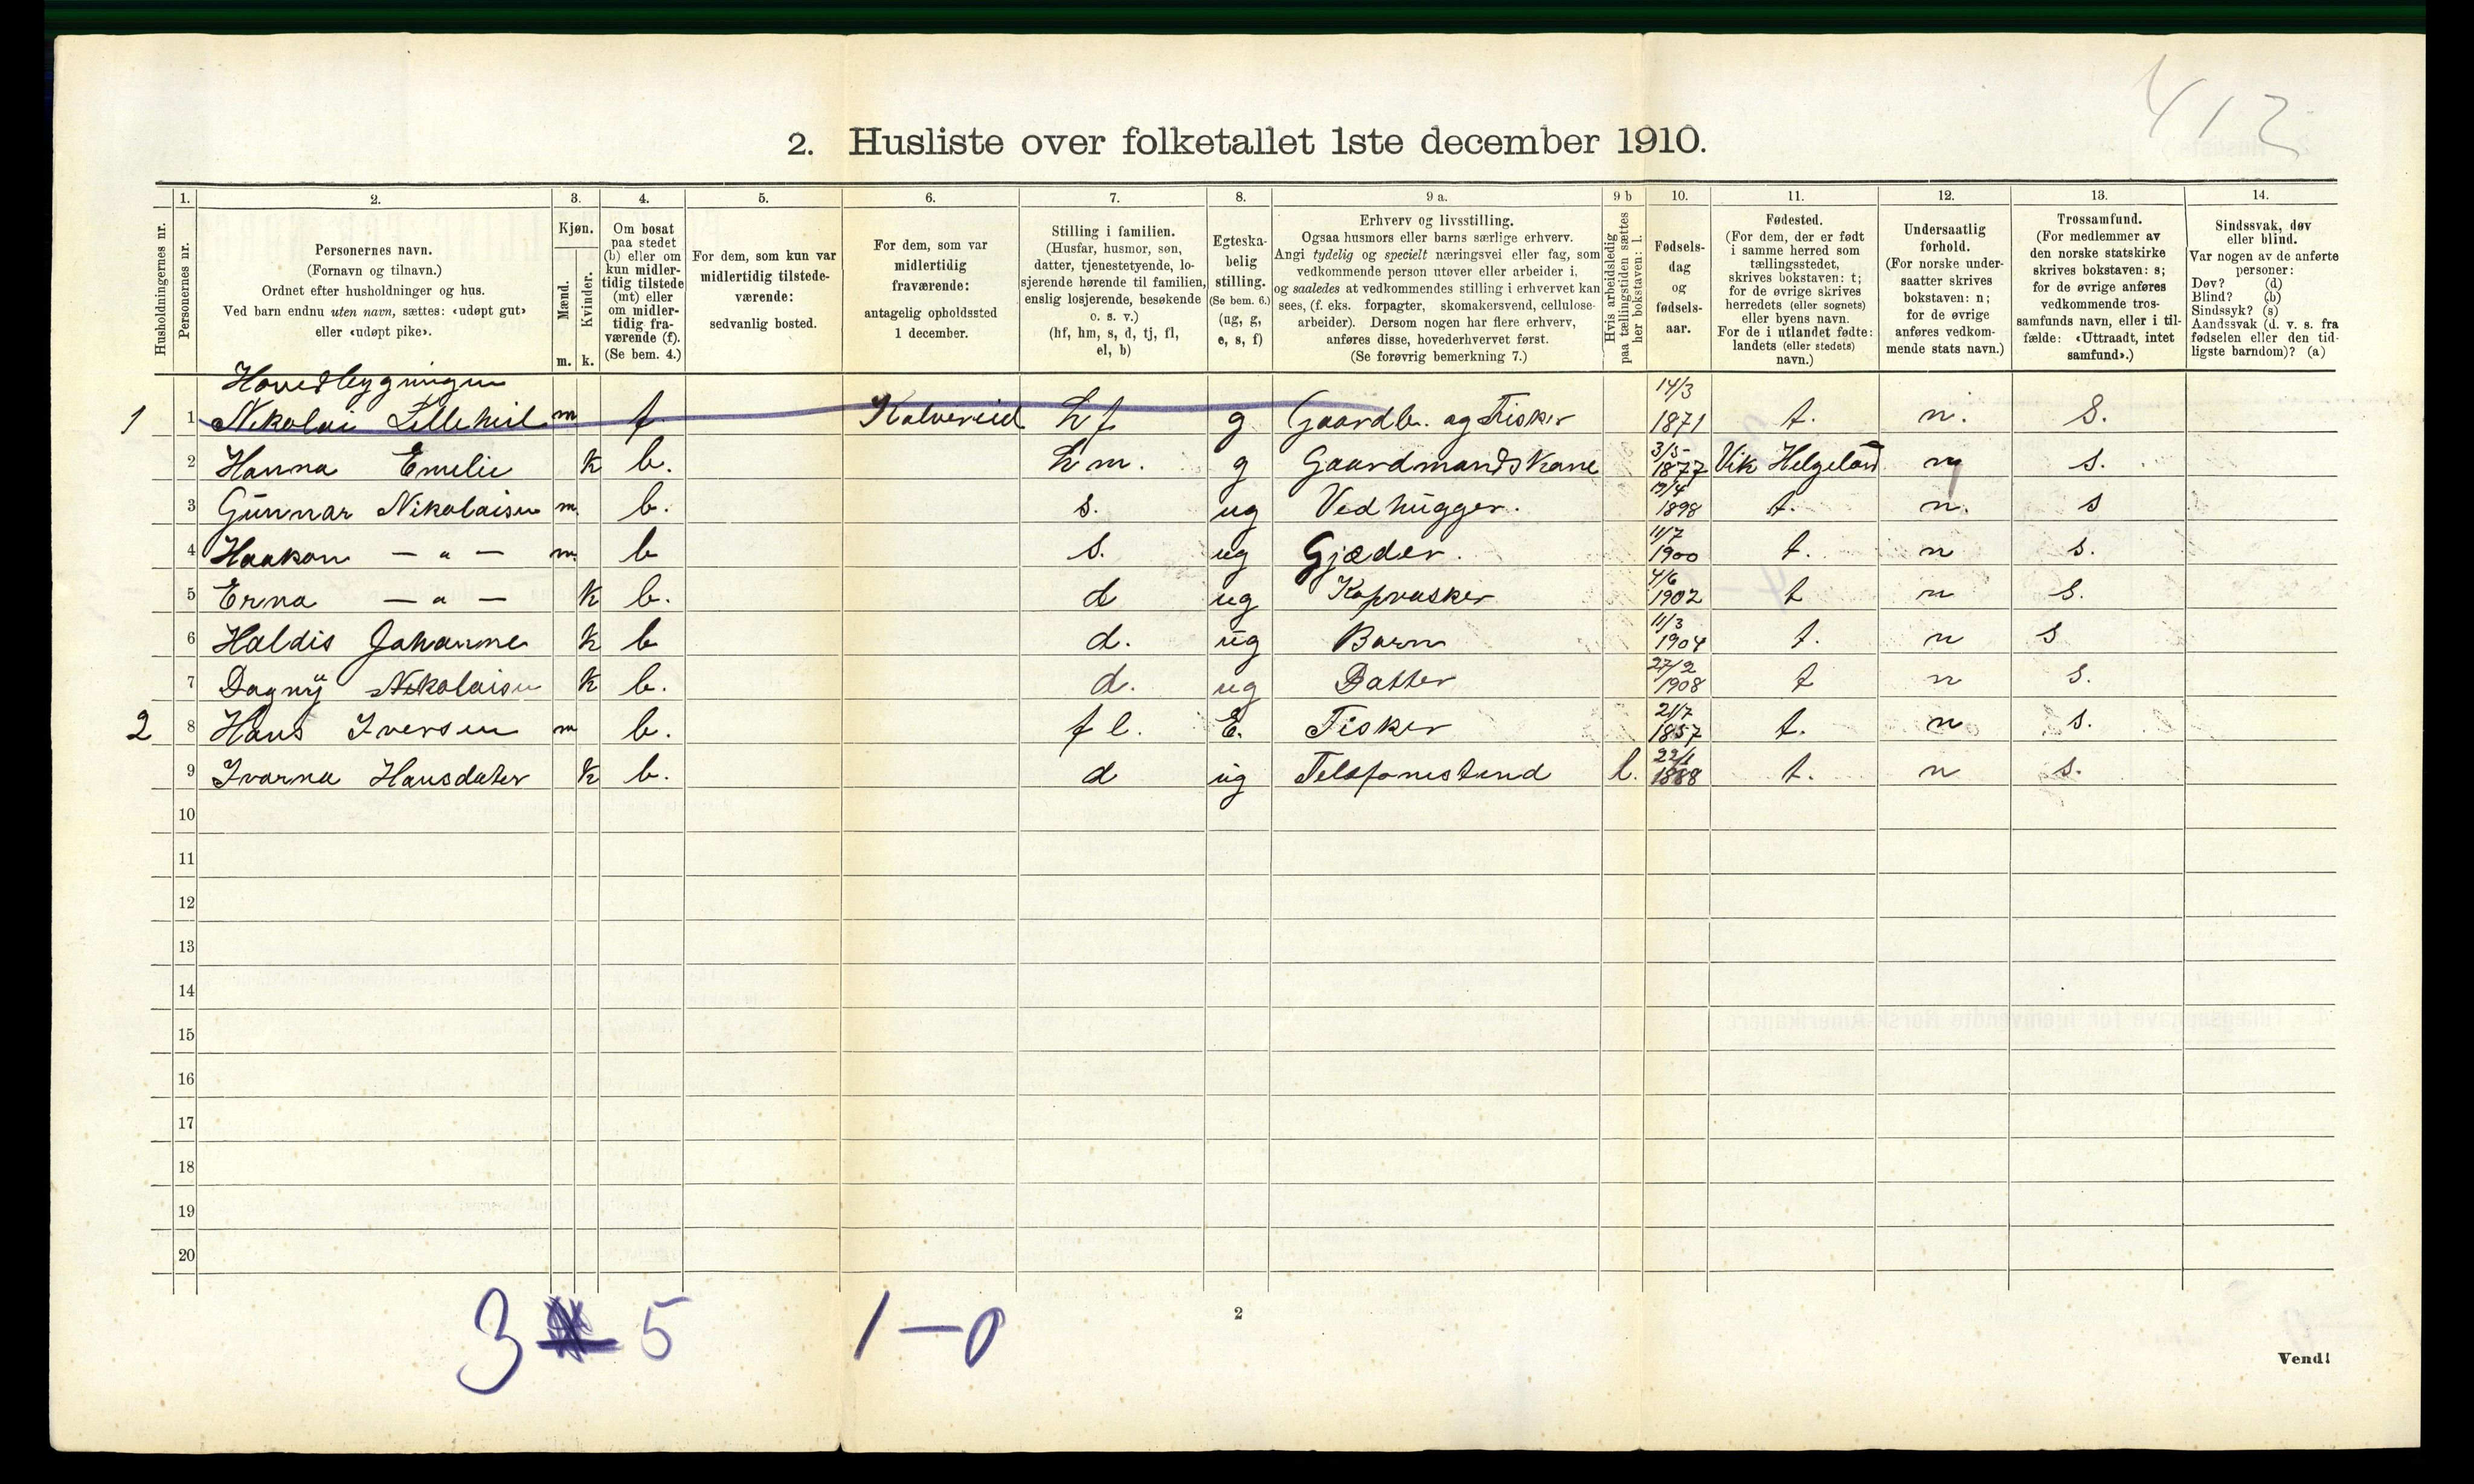 412
2. Husliste over folketallet 1ste december 1910.
Husholdningernes nr.
1.
Personernes nr.
2.
Personernes navn.
(Fornavn og tilnavn.)
Ordnet efter husholdninger og hus.
Ved barn endnu uten navn, sættes: «udøpt gut»
eller «udøpt pike».
3.
Kjøn.
Mænd.
Kvinder.
m. k.
4.
Om bosat
paa stedet
(b) eller om
kun midler-
tidig tilstede
(mt) eller
om midler-
tidig fra-
værende (f).
(Se bem. 4.)
5.
For dem, som kun var
midlertidig tilstede-
værende:
sedvanlig bosted.
6.
For dem, som var
midlertidig
fraværende:
antagelig opholdssted
1 december.
7.
Stilling i familien.
(Husfar, husmor, søn,
datter, tjenestetyende, lo-
sjerende hørende til familien,
enslig losjerende, besøkende
o. s. v.)
(hf, hm, s, d, tj, fl,
el, b)
8.
Egteska-
belig
stilling.
(Se bem. 6.)
(ug, g,
e, s, f)
9 a.
Erhverv og livsstilling.
Ogsaa husmors eller barns særlige erhverv.
Angi tydelig og specielt næringsvei eller fag, som
vedkommende person utøver eller arbeider i,
og saaledes at vedkommendes stilling i erhvervet kan
sees, (f. eks. forpagter, skomakersvend, cellulose-
arbeider). Dersom nogen har flere erhverv,
anføres disse, hovederhvervet først.
(Se forøvrig bemerkning 7.)
9 b
Hvis arbeidsledig
paa tællingstiden sættes
her bokstaven: l.
10.
Fødsels-
dag
og
fødsels-
aar.
11.
Fødested.
(For dem, der er født
i samme herred som
tællingsstedet,
skrives bokstaven: t;
for de øvrige skrives
herredets (eller sognets)
eller byens navn.
For de i utlandet fødte:
landets (eller stedets)
navn.)
12.
Undersaatlig
forhold.
(For norske under-
saatter skrives
bokstaven: n;
for de øvrige
anføres vedkom-
mende stats navn.)
13.
Trossamfund.
(For medlemmer av
den norske statskirke
skrives bokstaven: s;
for de øvrige anføres
vedkommende tros-
samfunds navn, eller i til-
fælde: «Uttraadt, intet
samfund».)
14.
Sindssvak, døv
eller blind.
Var nogen av de anførte
personer:
Døv? (d)
Blind? (b)
Sindssyk? (s)
Aandssvak (d. v. s. fra
fødselen eller den tid-
ligste barndom)? (a)
Hovedbygningen
1 1 Nikolai Lillehiil m f Kolvereid hf g Gaardb. og Fisker 14/3 1871 t. n. S.
2 Hanna Emelie k b. hm. g Gaardmandskone 3/5 1877 Vik Helgeland n s.
3 Gunnar Nikolaisen m. b. s. ug Vedhugger. 19/4 1898 t. n. s
4 Haakon — " — m. b s. ug Gjæder. 11/7 1900 t. n s.
5 Erna — " — k b. d ug Kopvasker 4/6 1902 t n s.
6 Haldis Johanne k b d. ug Barn 11/3 1904 t. n s
7 Dagny Nikolaisen k b. d. ug Datter 27/2 1908 t n s.
2 8 Hans Iversen m b. fl. E. Fisker 21/7 1857 t. n s.
9 Ivarna Hansdater k b. d ug Telefonistend l. 22/1 1888 t. n s.
10
11
12
13
14
15
16
17
18
19
20
3 5 1 — 0
2
Vend!